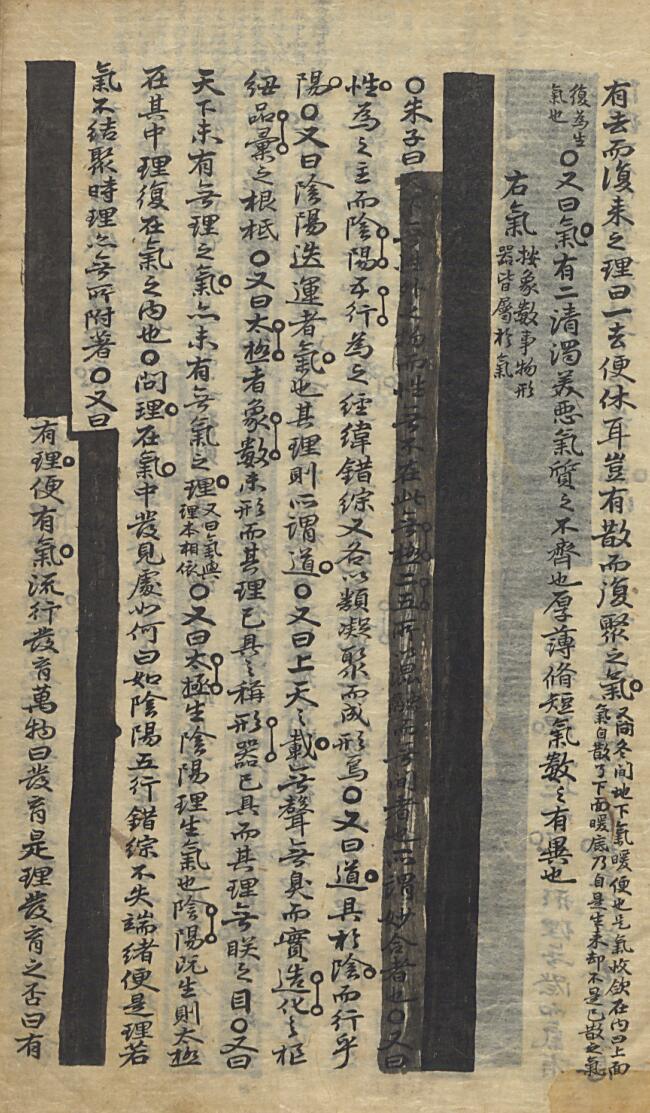 有去而復来之理曰一去便休耳豈有散而復聚之氣
又問冬間地下氣暖便也是氣收斂在内曰上面
氣自散了下面暖底乃自是生来却不是已散之氣
復為生
氣也
○又曰氣有二清濁美悪氣質之不齊也厚薄脩短氣數之有異也
右氣
按象數事物形
器皆屬於氣
○朱子曰天下無性外之物而性無不在此無極二五所以混融而無間者也所謂妙合者也○又曰
性為之主而陰陽五行為之經緯錯綜又各以類凝聚而成形焉○又曰道具於陰而行乎
陽○又曰陰陽迭運者氣也其理則所謂道○又曰上天之載無聲無臭而實造化之枢
紐品彙之根柢○又曰太極者象數未形而其理已具之稱形器已具而其理無眹之目○又曰
天下未有無理之氣亦未有無氣之理
又曰氣與
理本相依
○又曰太極生陰陽理生氣也陰陽既生則太極
在其中理復在氣之内也○問理在氣中發見處如何曰如陰陽五行錯綜不失端緒便是理若
氣不結聚時理亦無所附著○又曰
有理便有氣流行發育萬物曰發育是理發育之否曰有